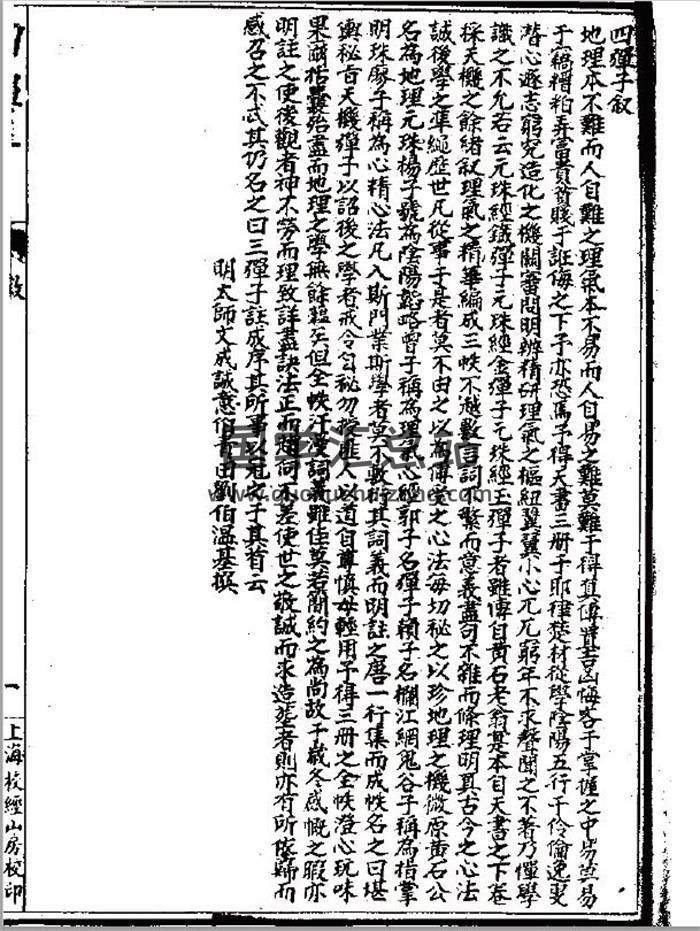 四彈子叙
地理本不難而人自難之理氣本不易而人自易之難莫難于得眞傳買吉凶悔吝于掌握之中易莫易
于一稿糟粕弄富貴貧賤于誑侮之下予亦恐焉予得天書三册于耶律楚材從學陰陽五行于伶倫逸叟
潛心遜志窮究造化之機關審問明辨精研理氣之樞紐翼翼小心兀兀窮年不求聲聞之不著乃憚學
識之不允若云元珠經鐵彈子元珠經金彈子元珠經玉彈子者雖傳自黄石老翁是本自天書之下卷
採天機之餘緒叙理氣之精華編成三帙不越數言詞不繁而意義盡句不雜而條理明眞古今之心法
誠後學之準繩歷世凡從事于是者莫不由之以為傳受之心法毎切秘之以珍地理之機微原黄石公
名為地理元珠楊子號為陰陽韜略曾子稱為理氣心經郭子名彈子賴子名攔江網鬼谷子稱為指掌
明珠廖子稱為心精心法凡入斯門業斯學者莫不敷衍其詞義而明註之唐一行集而成帙名之曰堪
輿秘旨天機彈子以詔後之學者戒令勿秘勿授匪人以道自尊慎毋輕用予得三册之全帙澄心玩味
果爾指囊殆盡而地理之學無餘蘊矣但全帙汗漫詞義雖佳莫若簡約之為尚故千歲冬感慨之暇亦
明註之使後觀者神不勞而理致詳盡訣法正而趨向不差使世之敬誠而求造塋者則亦有所依歸而
感召之不忒其仍名之曰三彈子註成序其所事以冠之于其首云
明太師文成誠意伯青田劉伯溫基撰
叙
一
上海校經山房校印
国学汇总站
www.guoxuehuizong.com